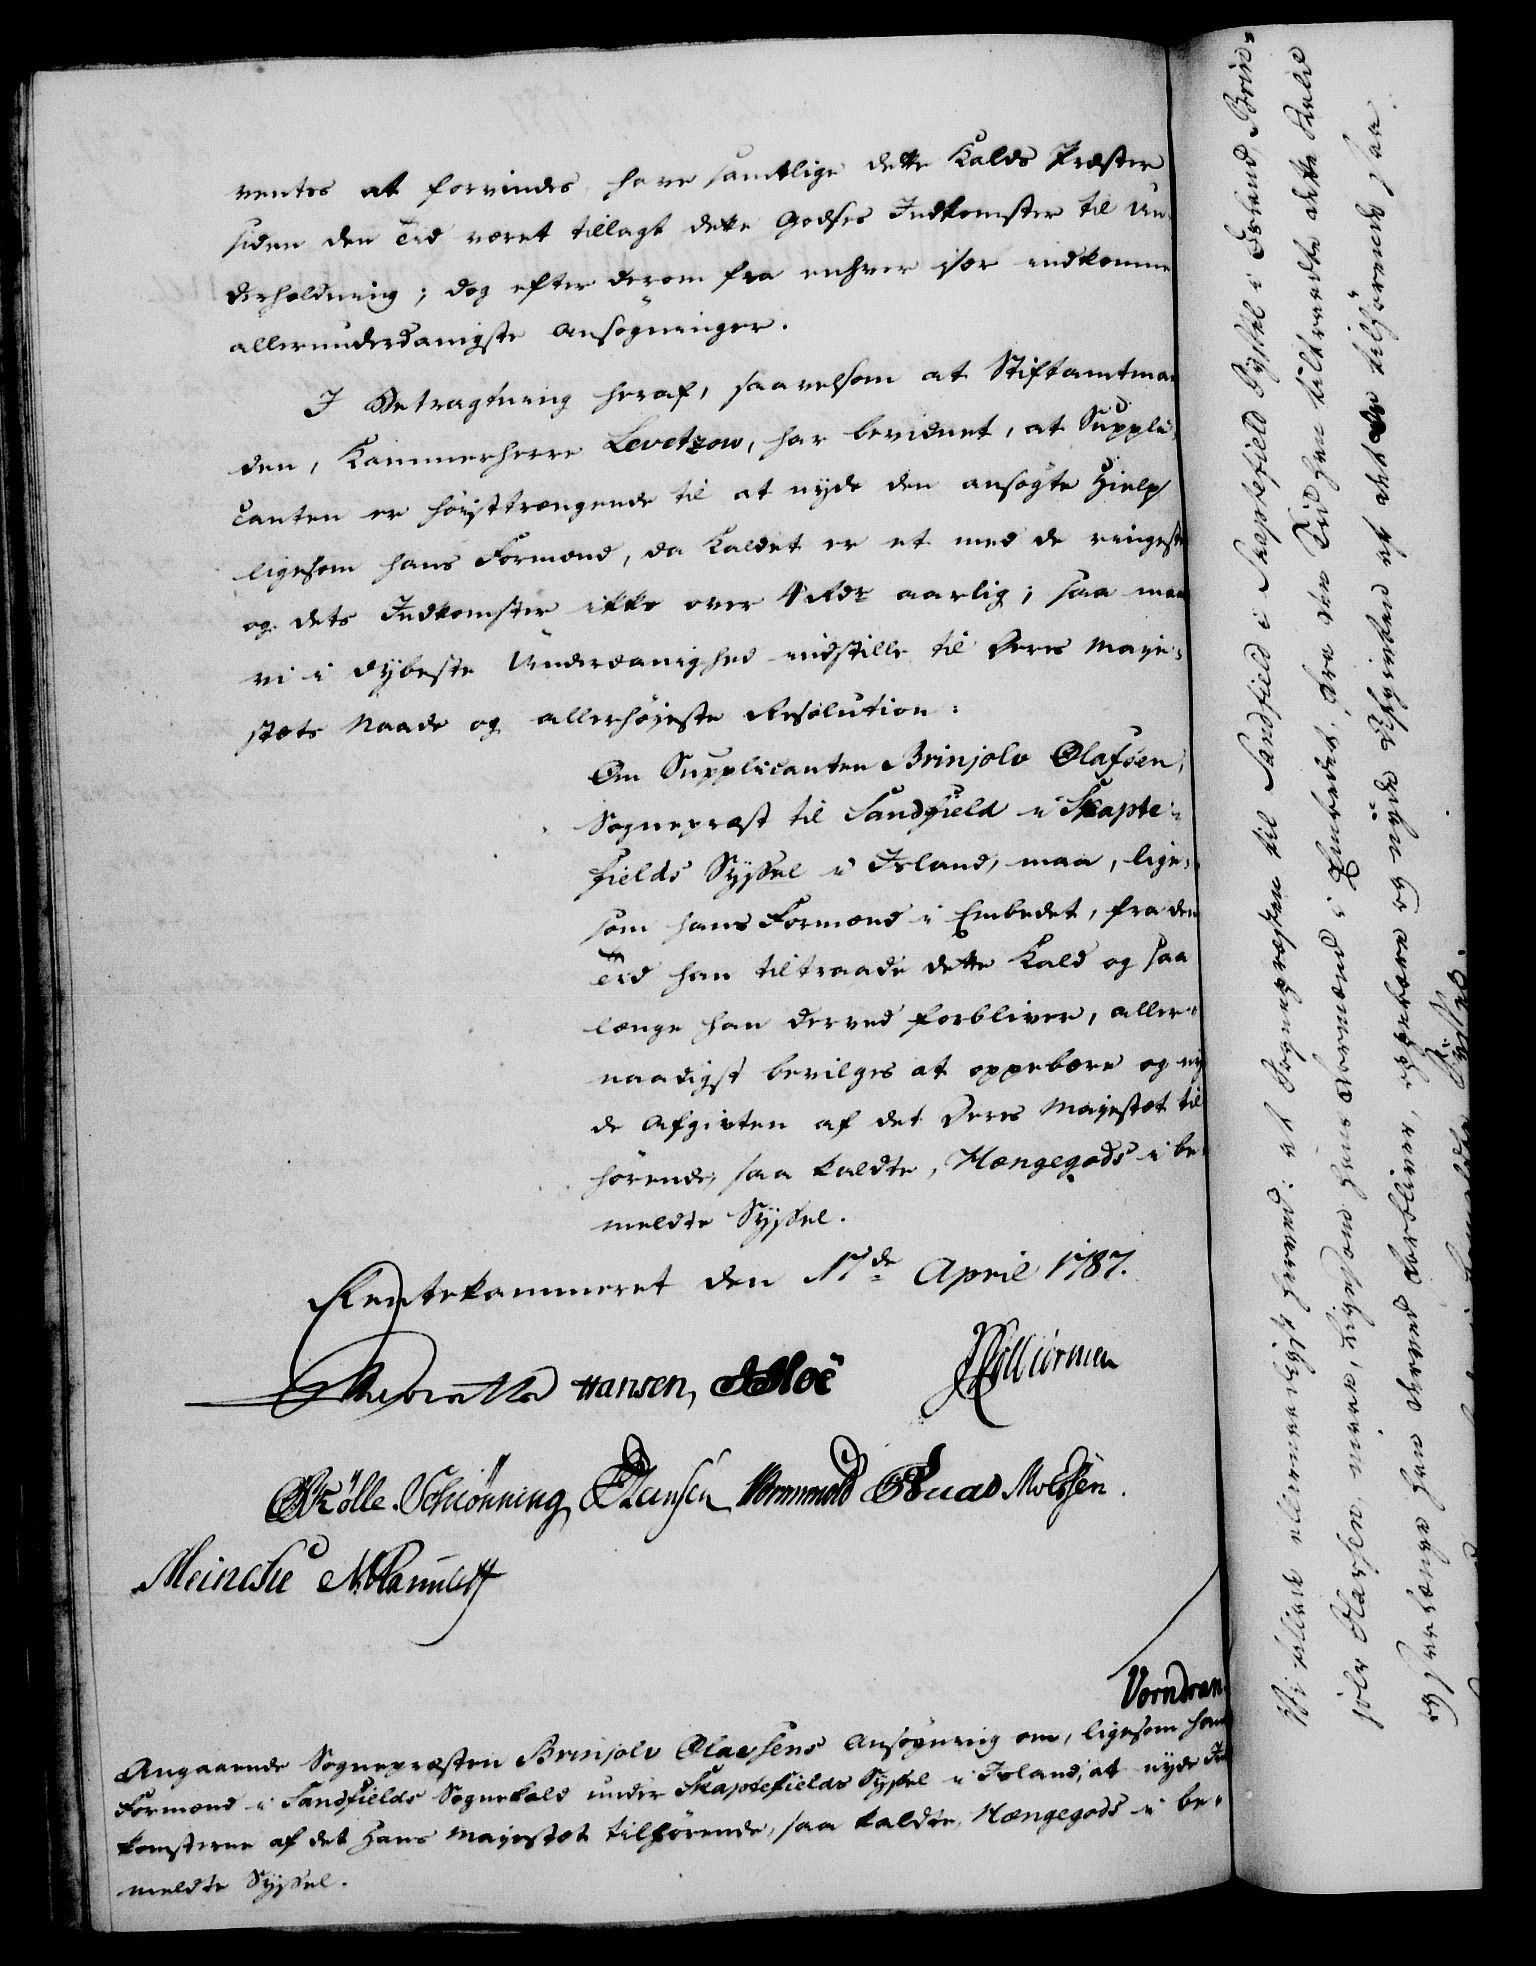 ventes at forvindes, have samtlige dette Kalds Præster
siden den Tid været tillagt dette Godses Indkomster til Un-
derholdning; dog efter derom fra enhver især indkomne
allerunderdanigste Ansøgninger.
I Betragtning heraf, saavelsom at Stiftamtman
den, Kammerherre Levetzow, har bevidnet, at Suppli-
canten er høist trængende til at nyde den ansøgte Hielp
ligesom hans Formænd, da Kaldet er et med de ringeste
og dets Indkomster ikke over 4 Rdr aarlig; saa maa
vi i dybeste Underdanighed indstille til Deres Maje-
stæts Naade og allerhøjeste Resolution:
Om Supplicanten Brinjolv Olafsen,
Sognepræst til Sandfield i Skapte-
fields Syssel i Island, maa, lige-
som hans Formænd i Embedet, fra den
Tid han tiltraade dette Kald og saa
længe han derved forbliver, aller-
naadigst bevilges at oppebære og ny
de Afgivten af det Deres Majestæt til
hørende, saa kaldte, Mængegods i be-
meldte Syssel.
Rentekammeret den 17de April 1787.
Hansen, JMoe
Kølle. Schiönning Hansen Brummold Buas Moessen.
Meincke
Vorndran.
Angaaende Sognepræsten Brinjolv Olavsens Ansøgning om, ligesom hans
Formænd i Sandfields Sognekald under Skaptefields Syssel i Island, at nyde Ind
komsterne af det Hans Majestæt tilhørende, saa kaldte, Mængegods i be-
meldte Syssel.
Vi ville allernaadigst herved: at Sognepræsten til Sandfield i Skaptefield Syssel i Island, Brin-
jolv Olavsen, maae, ligesom hans Formænd i Embedet, fra den Tid han tiltraadte dette Kald
og saalænge han derved forbliver, oppebære og nyde Afgivten af det Os tilhørende saa
bemeldte Syssel.